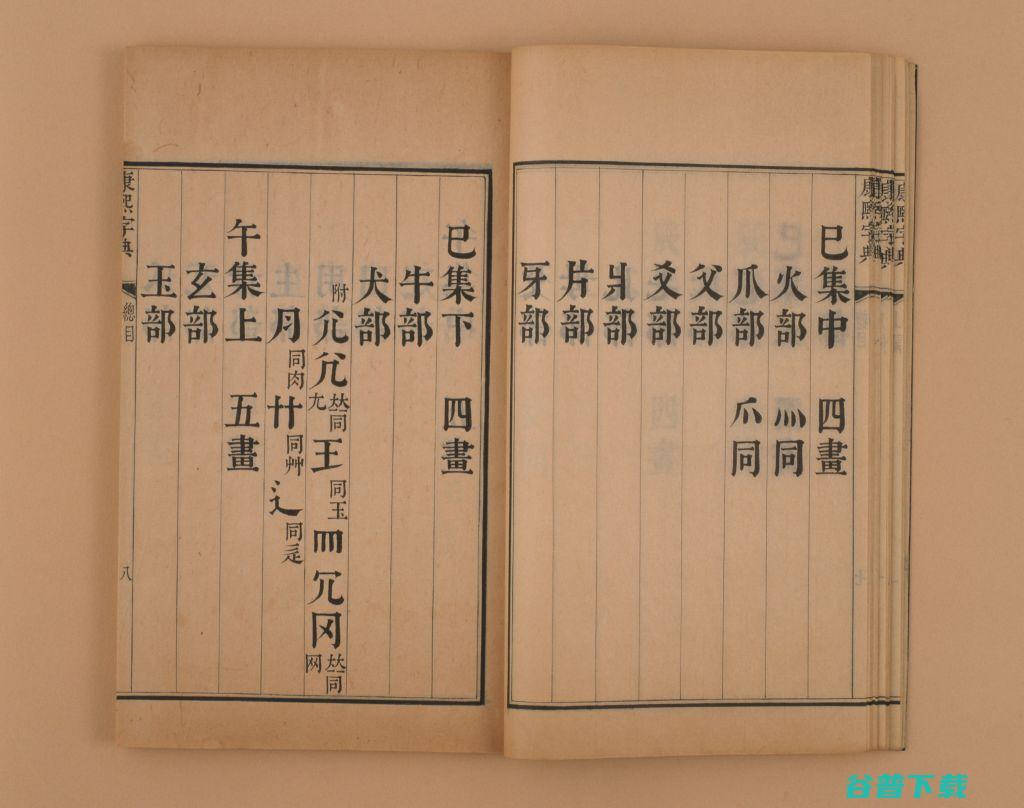 巳集中　四畫
火部　灬同
爪部　爫同
父部
爻部
爿部
片部
牙部
巳集下　四畫
牛部
犬部
附尣兀𠀤同尢王同玉罒冗冈𠀤同网
月同肉艹同艸辶同辵
午集上　五畫
玄部
玉部
康熙字典　總目　八
康熙字典
谷普下载